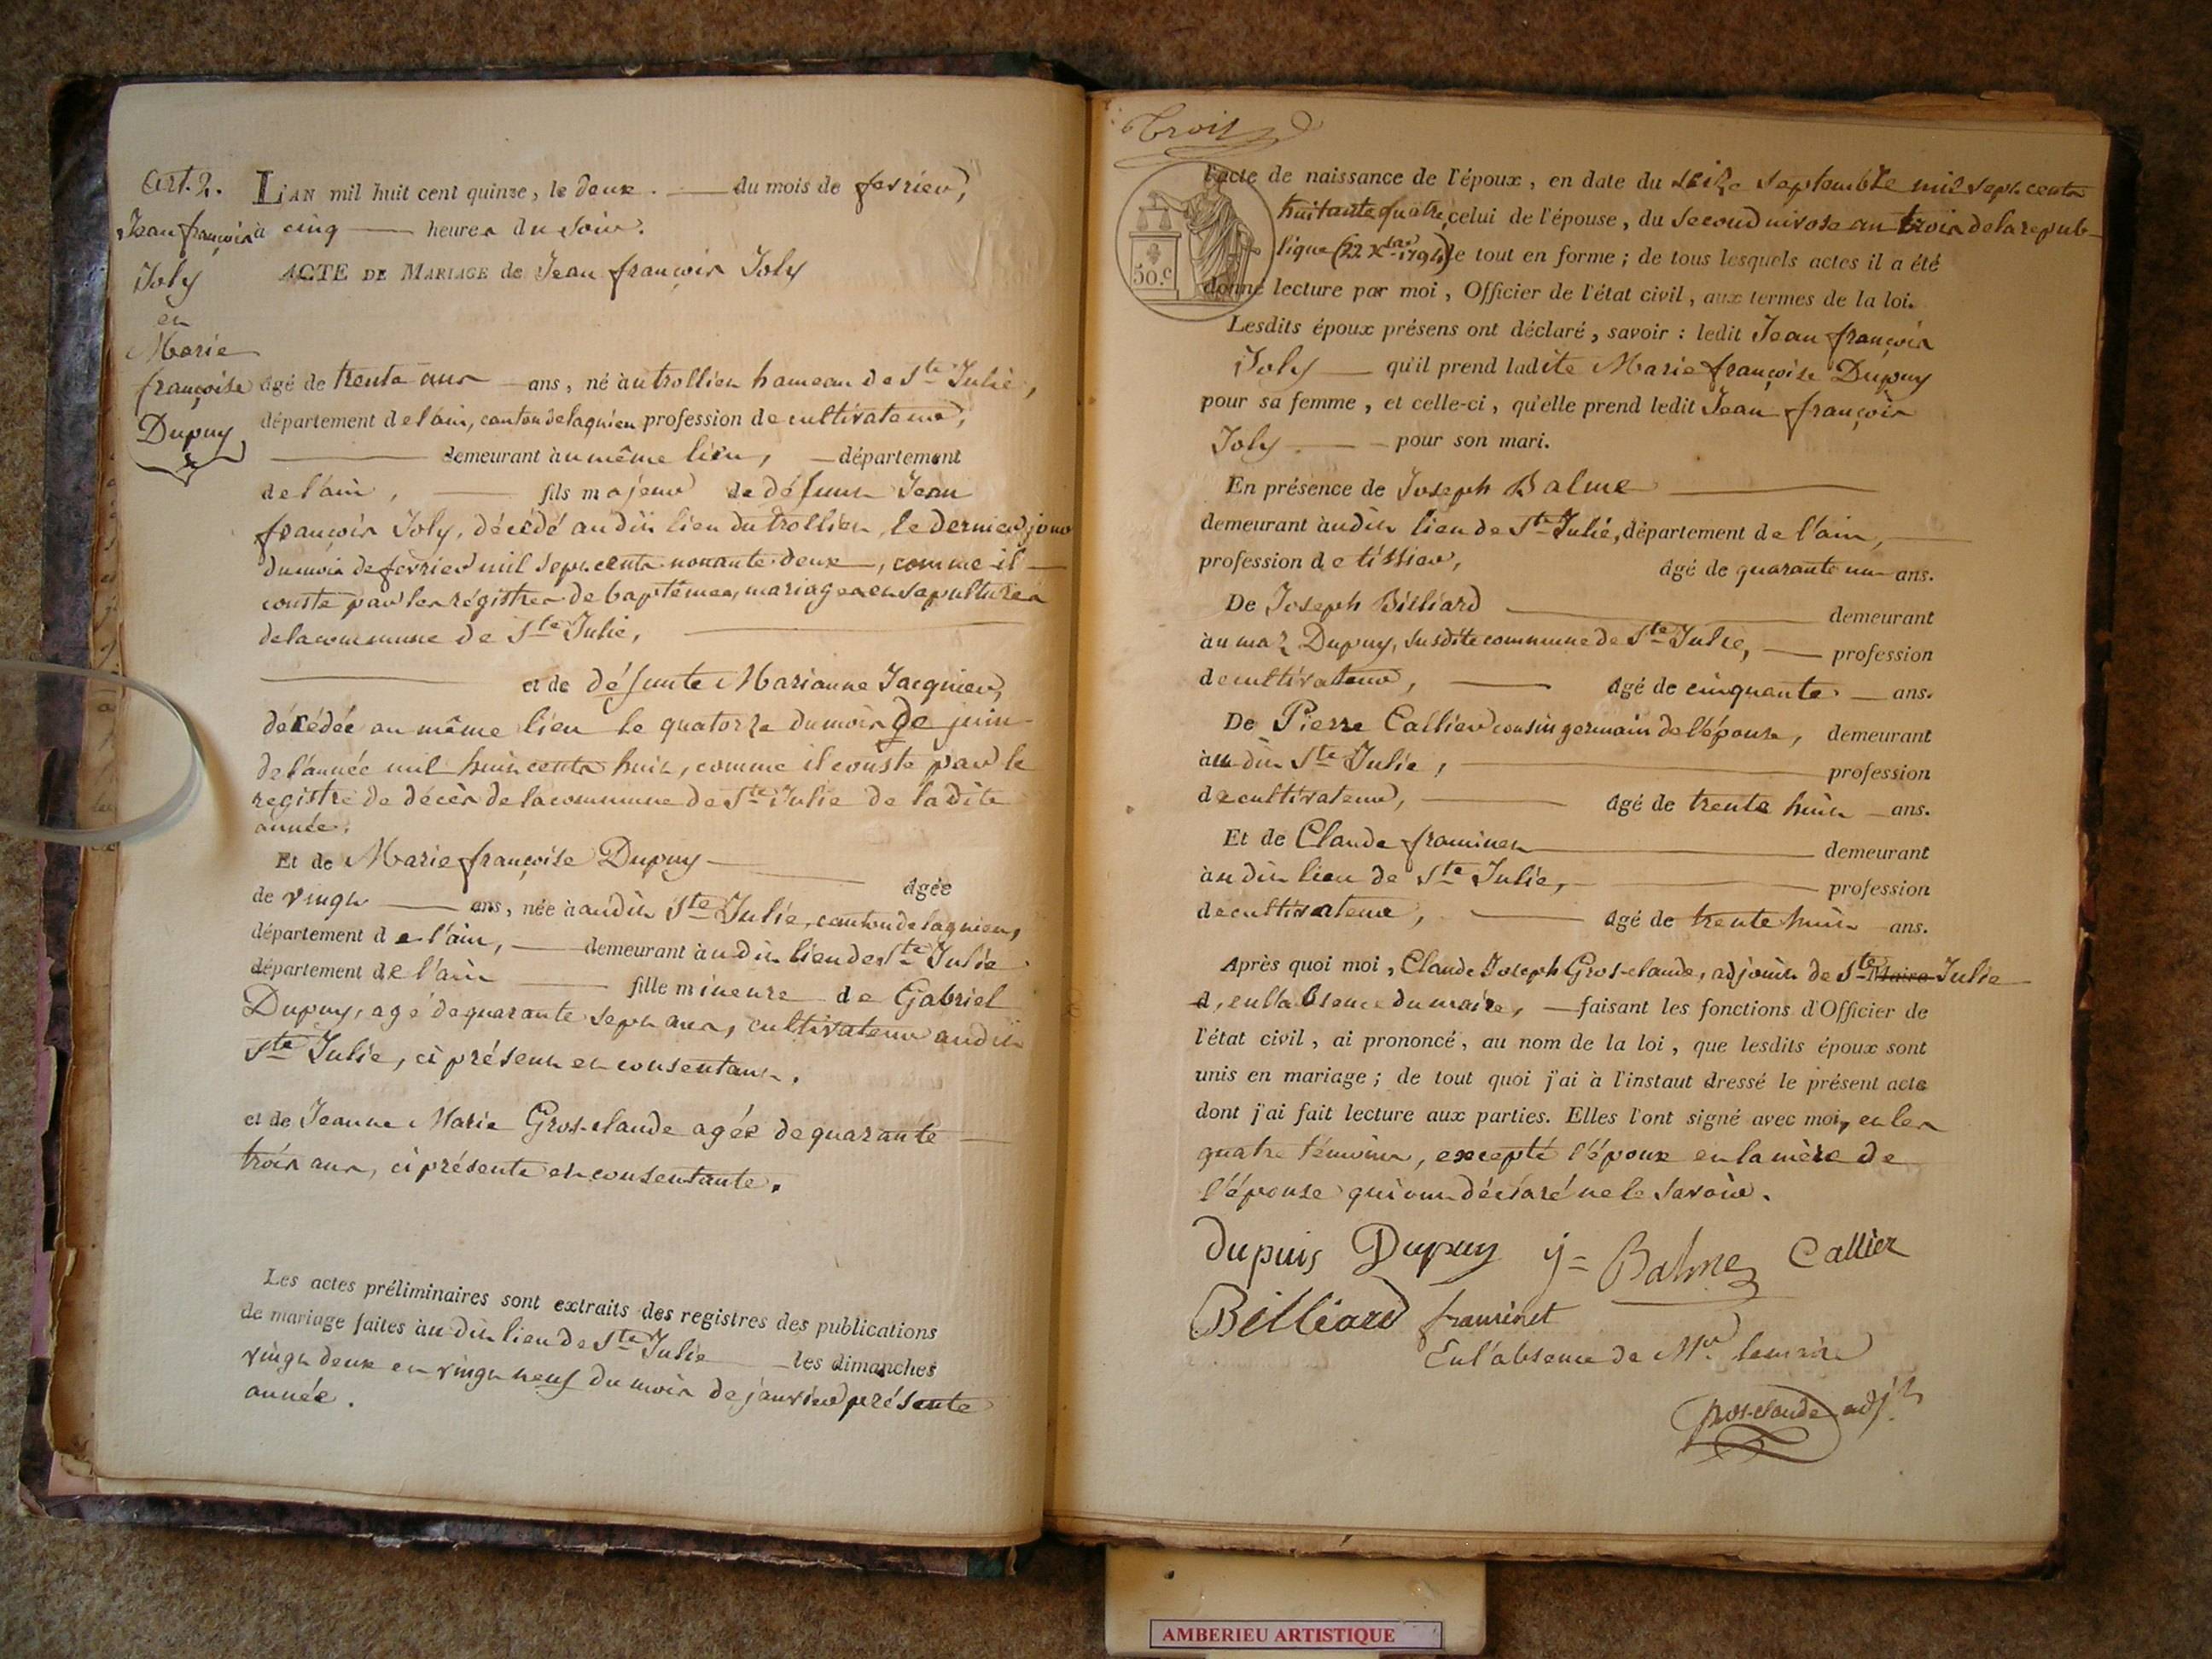 Art. 2.
Jean françois
Joly
et
Marie
françoise
Dupuy
L'AN mil huit cent quinze, le deux. du mois de fevrier,
à cinq heures du soir.
ACTE DE MARIAGE de Jean françois Joly
âgé de trente ans ans, né à u trollier hameau de Ste Julie,
département de l'ain, canton de lagnieu profession de cultivateur,
demeurant à u même lieu, département
de l'ain, fils majeur de défunt Jean
françois Joly, décédé audit lieu du trollier, le dernier jour
du mois de fevrier mil sept cents nonante deux, comme il
conste par les régistres de baptêmes, mariages et sepultures
de la commune de Ste Julie,
et de défunte Marianne Jacquier,
décédée au même lieu le quatorze du mois de juin
de l'année mil huit cents huit, comme il conste par le
registre de décès de la commune de Ste Julie de la dite
année.
Et de Marie françoise Dupuy âgée
de vingt ans, née à audit Ste Julie, canton de lagnieu,
département de l'ain, demeurant à u dit lieu de Ste Julie
département de l'ain fille mineure de Gabriel
Dupuy, agé de quarante sept ans, cultivateur audit
Ste Julie, ci présent et consentant.
et de Jeanne Marie Gros-claude agée de quarante
trois ans, ci présente et consentante.
Les actes préliminaires sont extraits des registres des publications
de mariage faites à u dit lieu de Ste Julie les dimanches
vingt deux et vingt neuf du mois de janvier présente
année.
trois
50.c
l'acte de naissance de l'époux, en date du seize septembre mil sept cents
huitante quatre, celui de l'épouse, du second nivose an trois de la répub-
lique (22 Xbre 1794) le tout en forme; de tous lesquels actes il a été
donné lecture par moi, Officier de l'état civil, aux termes de la loi.
Lesdits époux présens ont déclaré, savoir: ledit Jean françois
Joly qu'il prend ladite Marie françoise Dupuy
pour sa femme, et celle-ci, qu'elle prend ledit Jean françois
Joly pour son mari.
En présence de Joseph Balme
demeurant à udit lieu de Ste Julie, département de l'ain,
profession de tissier, âgé de quarante un ans.
De Joseph Billiard demeurant
à u maz Dupuy, susdite commune de Ste Julie, profession
de cultivateur, âgé de cinquante ans.
De Pierre Callier cousin germain de l'épouse, demeurant
à u dit Ste Julie, profession
de cultivateur, âgé de trente huit ans.
Et de Claude framinet demeurant
à u dit lieu de Ste Julie, profession
de cultivateur, âgé de trente huit ans.
Après quoi moi, Claude Joseph Gros-claude, adjoint de Ste Maire Julie
d, en l'absence du maire, faisant les fonctions d'Officier de
l'état civil, ai prononcé, au nom de la loi, que lesdits époux sont
unis en mariage; de tout quoi j'ai à l'instant dressé le présent acte
dont j'ai fait lecture aux parties. Elles l'ont signé avec moi, et les
quatre témoins, excepté l'époux et la mère de
l'épouse qui ont déclaré ne le savoir.
dupuis Dupuy j= Balme Callier
Billiard framinet
En l'absence de Mr le maire
Gros-claude adjt
AMBERIEU ARTISTIQUE